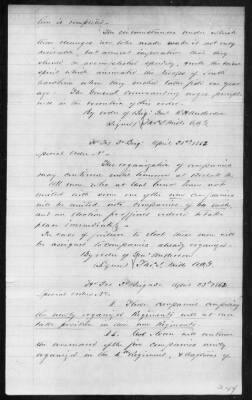 tion is completed.
The circumstances under which
these changes are made make it not only
desirable but almost imperative that they
should be accomplished speedily, with the
spirit which animated the troops of South
Carolina when they ended one year
ago. The General commanding urges prompt
in the execution of this order.
By order of Brig Genl Anderson
Signed
Hd Qrs Brig April 23rd 1862
Special order No
The organization of companies
may continue until tomorrow at
All men who at that hour have not
united with some one of the new companies
will be united into companies of
and an election of officers ordered to take
place immediately.
In case of failure to elect these men will
be assigned to companies already organized.
By order of Genl Anderson
Signed
Hd Qrs Brigade April 23rd 1862
Special order No.
I. Those companies composing
the newly organized Regiments will at once
take position in their own Regiments.
II. will continue
the command of the companies newly
organized in the Regiment, & Captains of